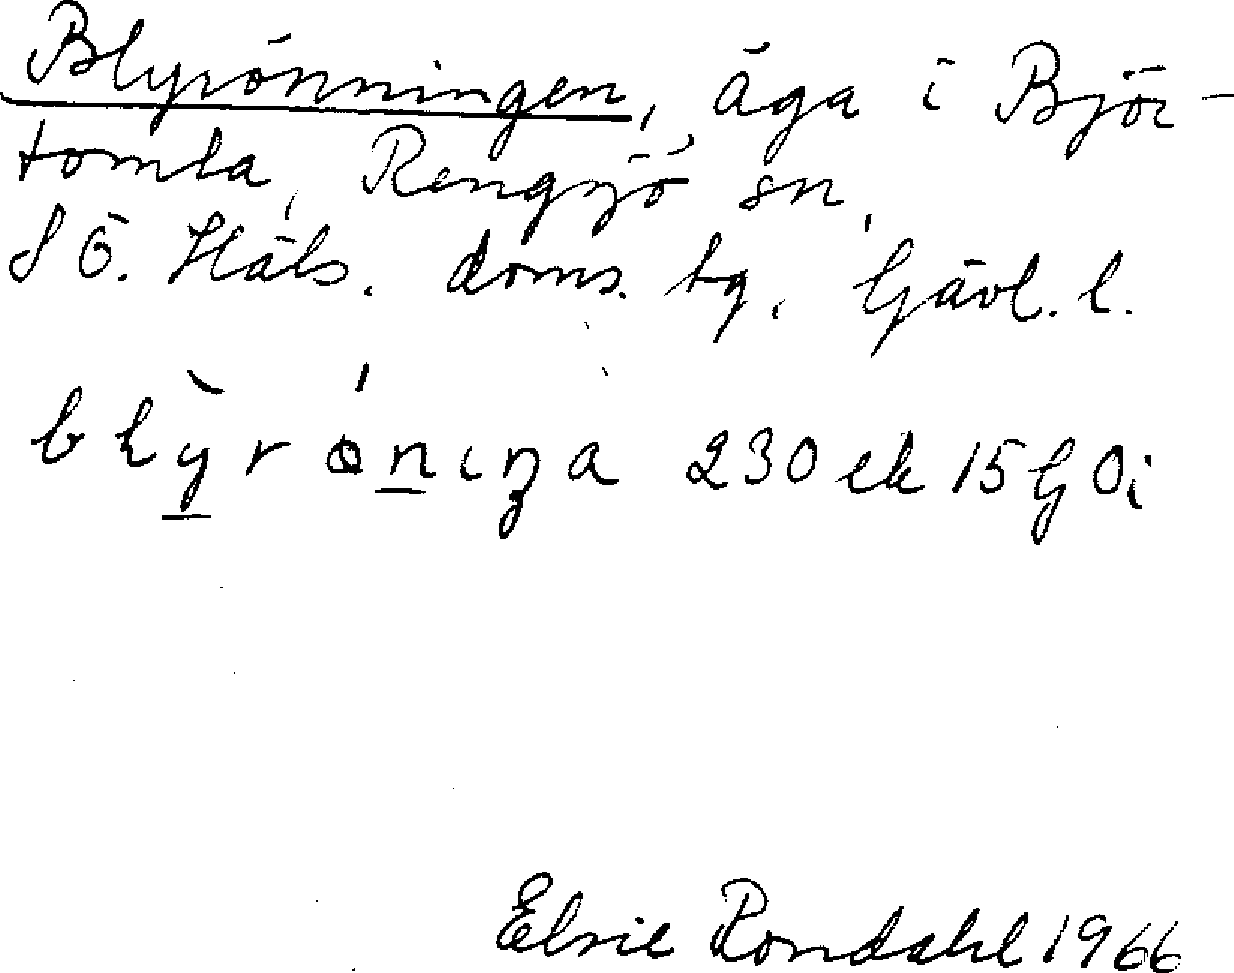 Blyrönningen, äga i Björ-
tomta, Rengsjö sn,
SÖ. Häls. doms. tg. Gävl. l.
blỳrǿnıŋa 230 ek 15G0i
Elsie Rondahl 1966